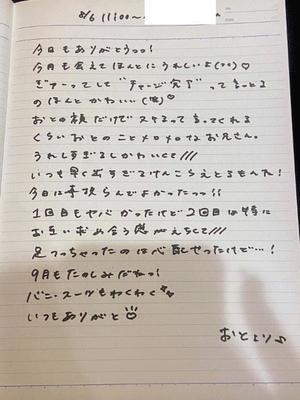 8/6 11:00〜
今日もありがとうっっ!
今月も会えてほんとにうれしいよ(°°)♡
ぎゅーってして"チャージ完了"って言っとる
のほんとかわいい(°°)♡
おとの顔だけで って言ってくれる
くらいおとのことメロメロなお兄さん。
うれしすぎるしかわいくて///
いつも早く すで けんこらえとるもんね!
今日は 何でよかったっっ!!
1回目もヤバかったけど2回目は特に
お互い求め合う感がえちくて///
足つっちゃったのは心配やったけど…!
9月もたのしみだねっ!
バニースーツもわくわく
いつもありがと
おとより♪